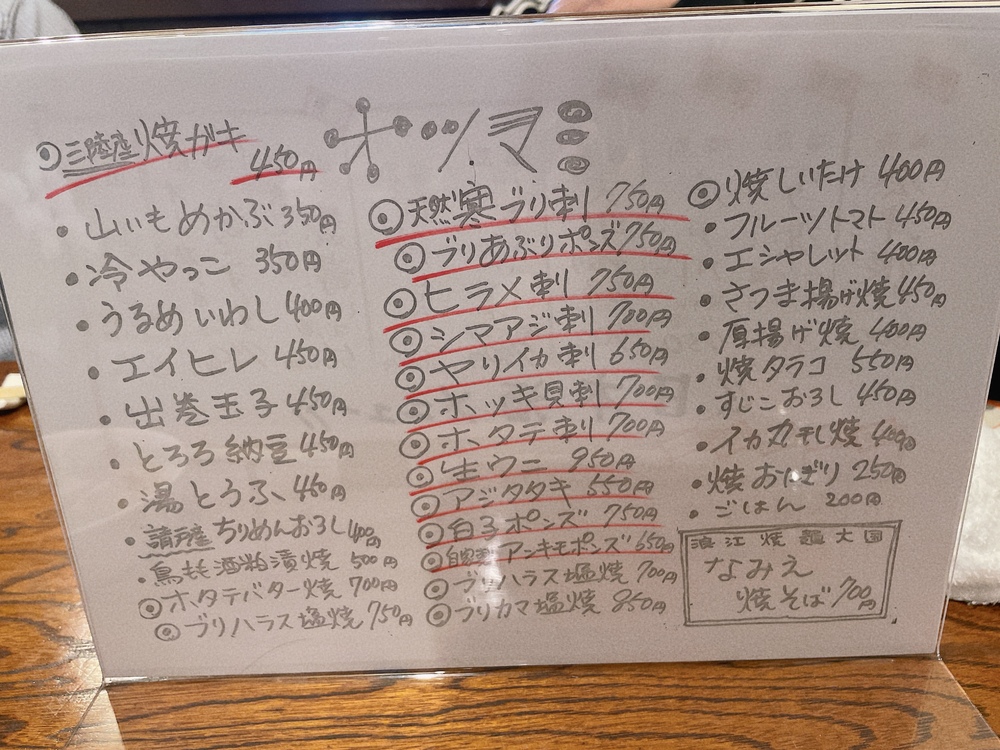 オツマミ
◎三陸産焼ガキ 450円
・山いもめかぶ 350円
・冷やっこ 350円
・うるめいわし 400円
・エイヒレ 450円
・出巻玉子 450円
・とろろ納豆 450円
・湯とうふ 450円
・請戸産ちりめんおろし 400円
・鳥もも酒粕漬焼 500円
◎ホタテバター焼 700円
◎ブリハラス塩焼 750円
◎天然寒ブリ刺 750円
◎ブリあぶりポンズ 750円
◎ヒラメ刺 750円
◎シマアジ刺 700円
◎ヤリイカ刺 650円
◎ホッキ貝刺 700円
◎ホタテ刺 700円
◎生ウニ 950円
◎アジタタキ 550円
◎白子ポンズ 750円
◎自家製アンキモポンズ 650円
◎ブリハラス塩焼 700円
◎ブリカマ塩焼 850円
◎焼しいたけ 400円
・フルーツトマト 450円
・エシャレット 400円
・さつま揚げ焼 450円
・厚揚げ焼 400円
・焼タラコ 550円
・すじこおろし 450円
・イカ丸干し焼 400円
・焼おにぎり 250円
・ごはん 200円
浪江焼麺太国
なみえ
焼そば 700円